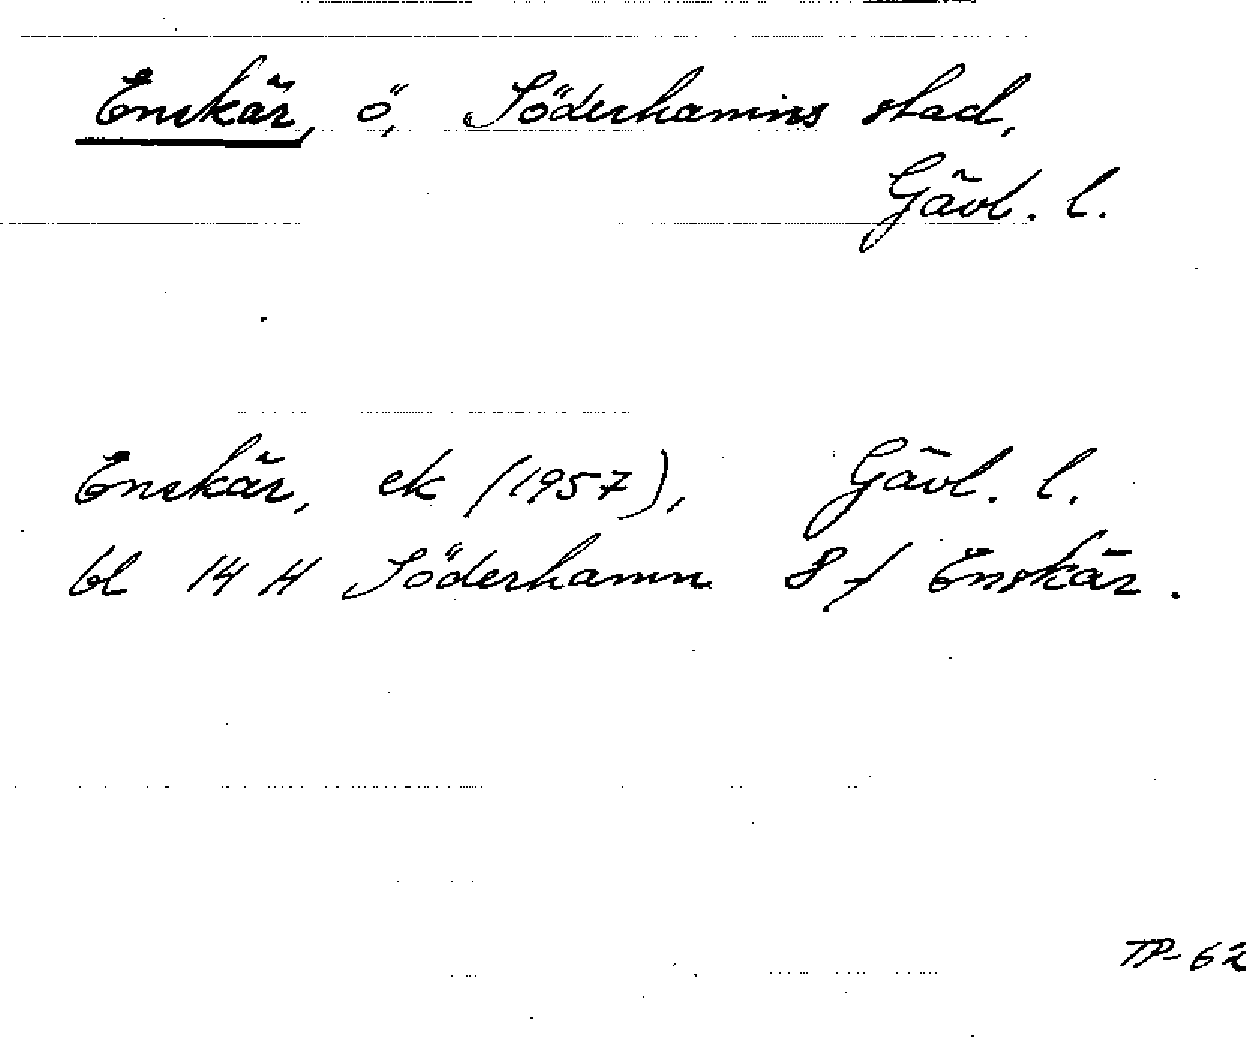 Enskär, ö, Söderhamns stad,
Gävl. l.
Enskär, ek (1957), Gävl. l.
bl 14 H Söderhamn 8 f Enskär.
TP-62